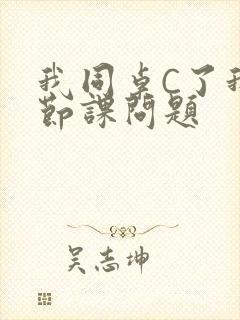 我同桌C了我
节课问题
吴志坤